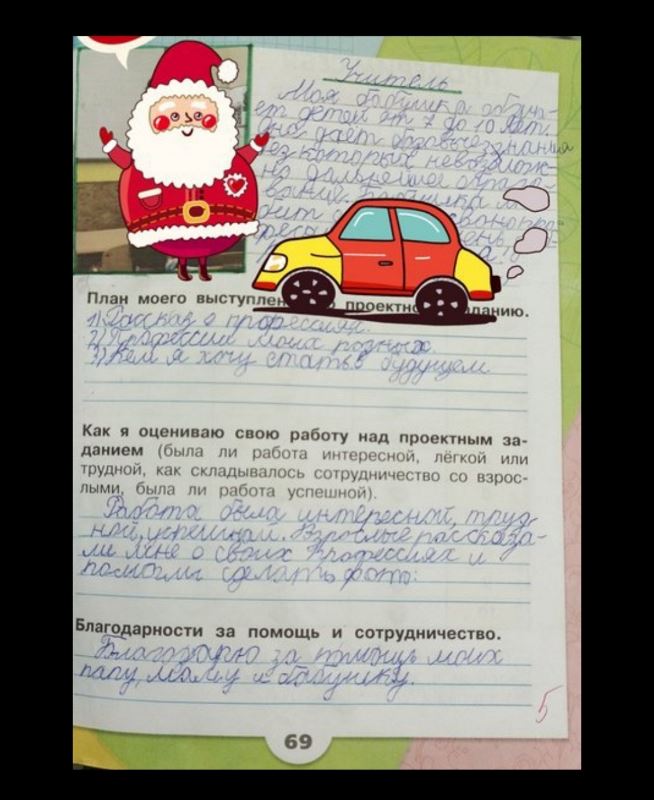 Учитель
Моя бабушка обуча-
ет детей от 7 до 10 лет.
Она даёт базовые знания
без которых невозмож-
но дальнейшее образо-
вание. Бабушка
План моего выступлен проектно данию.
1) Рассказ о профессиях.
2) Профессии моих родных.
3) Кем я хочу стать в будущем.
Как я оцениваю свою работу над проектным за-
данием (была ли работа интересной, лёгкой или
трудной, как складывалось сотрудничество со взрос-
лыми, была ли работа успешной).
Работа была интересной, труд-
ной, успешной. Взрослые рассказа-
ли мне о своих профессиях и
помогли сделать фото.
Благодарности за помощь и сотрудничество.
Благодарю за помощь моих
папу, маму и бабушку.
5
69